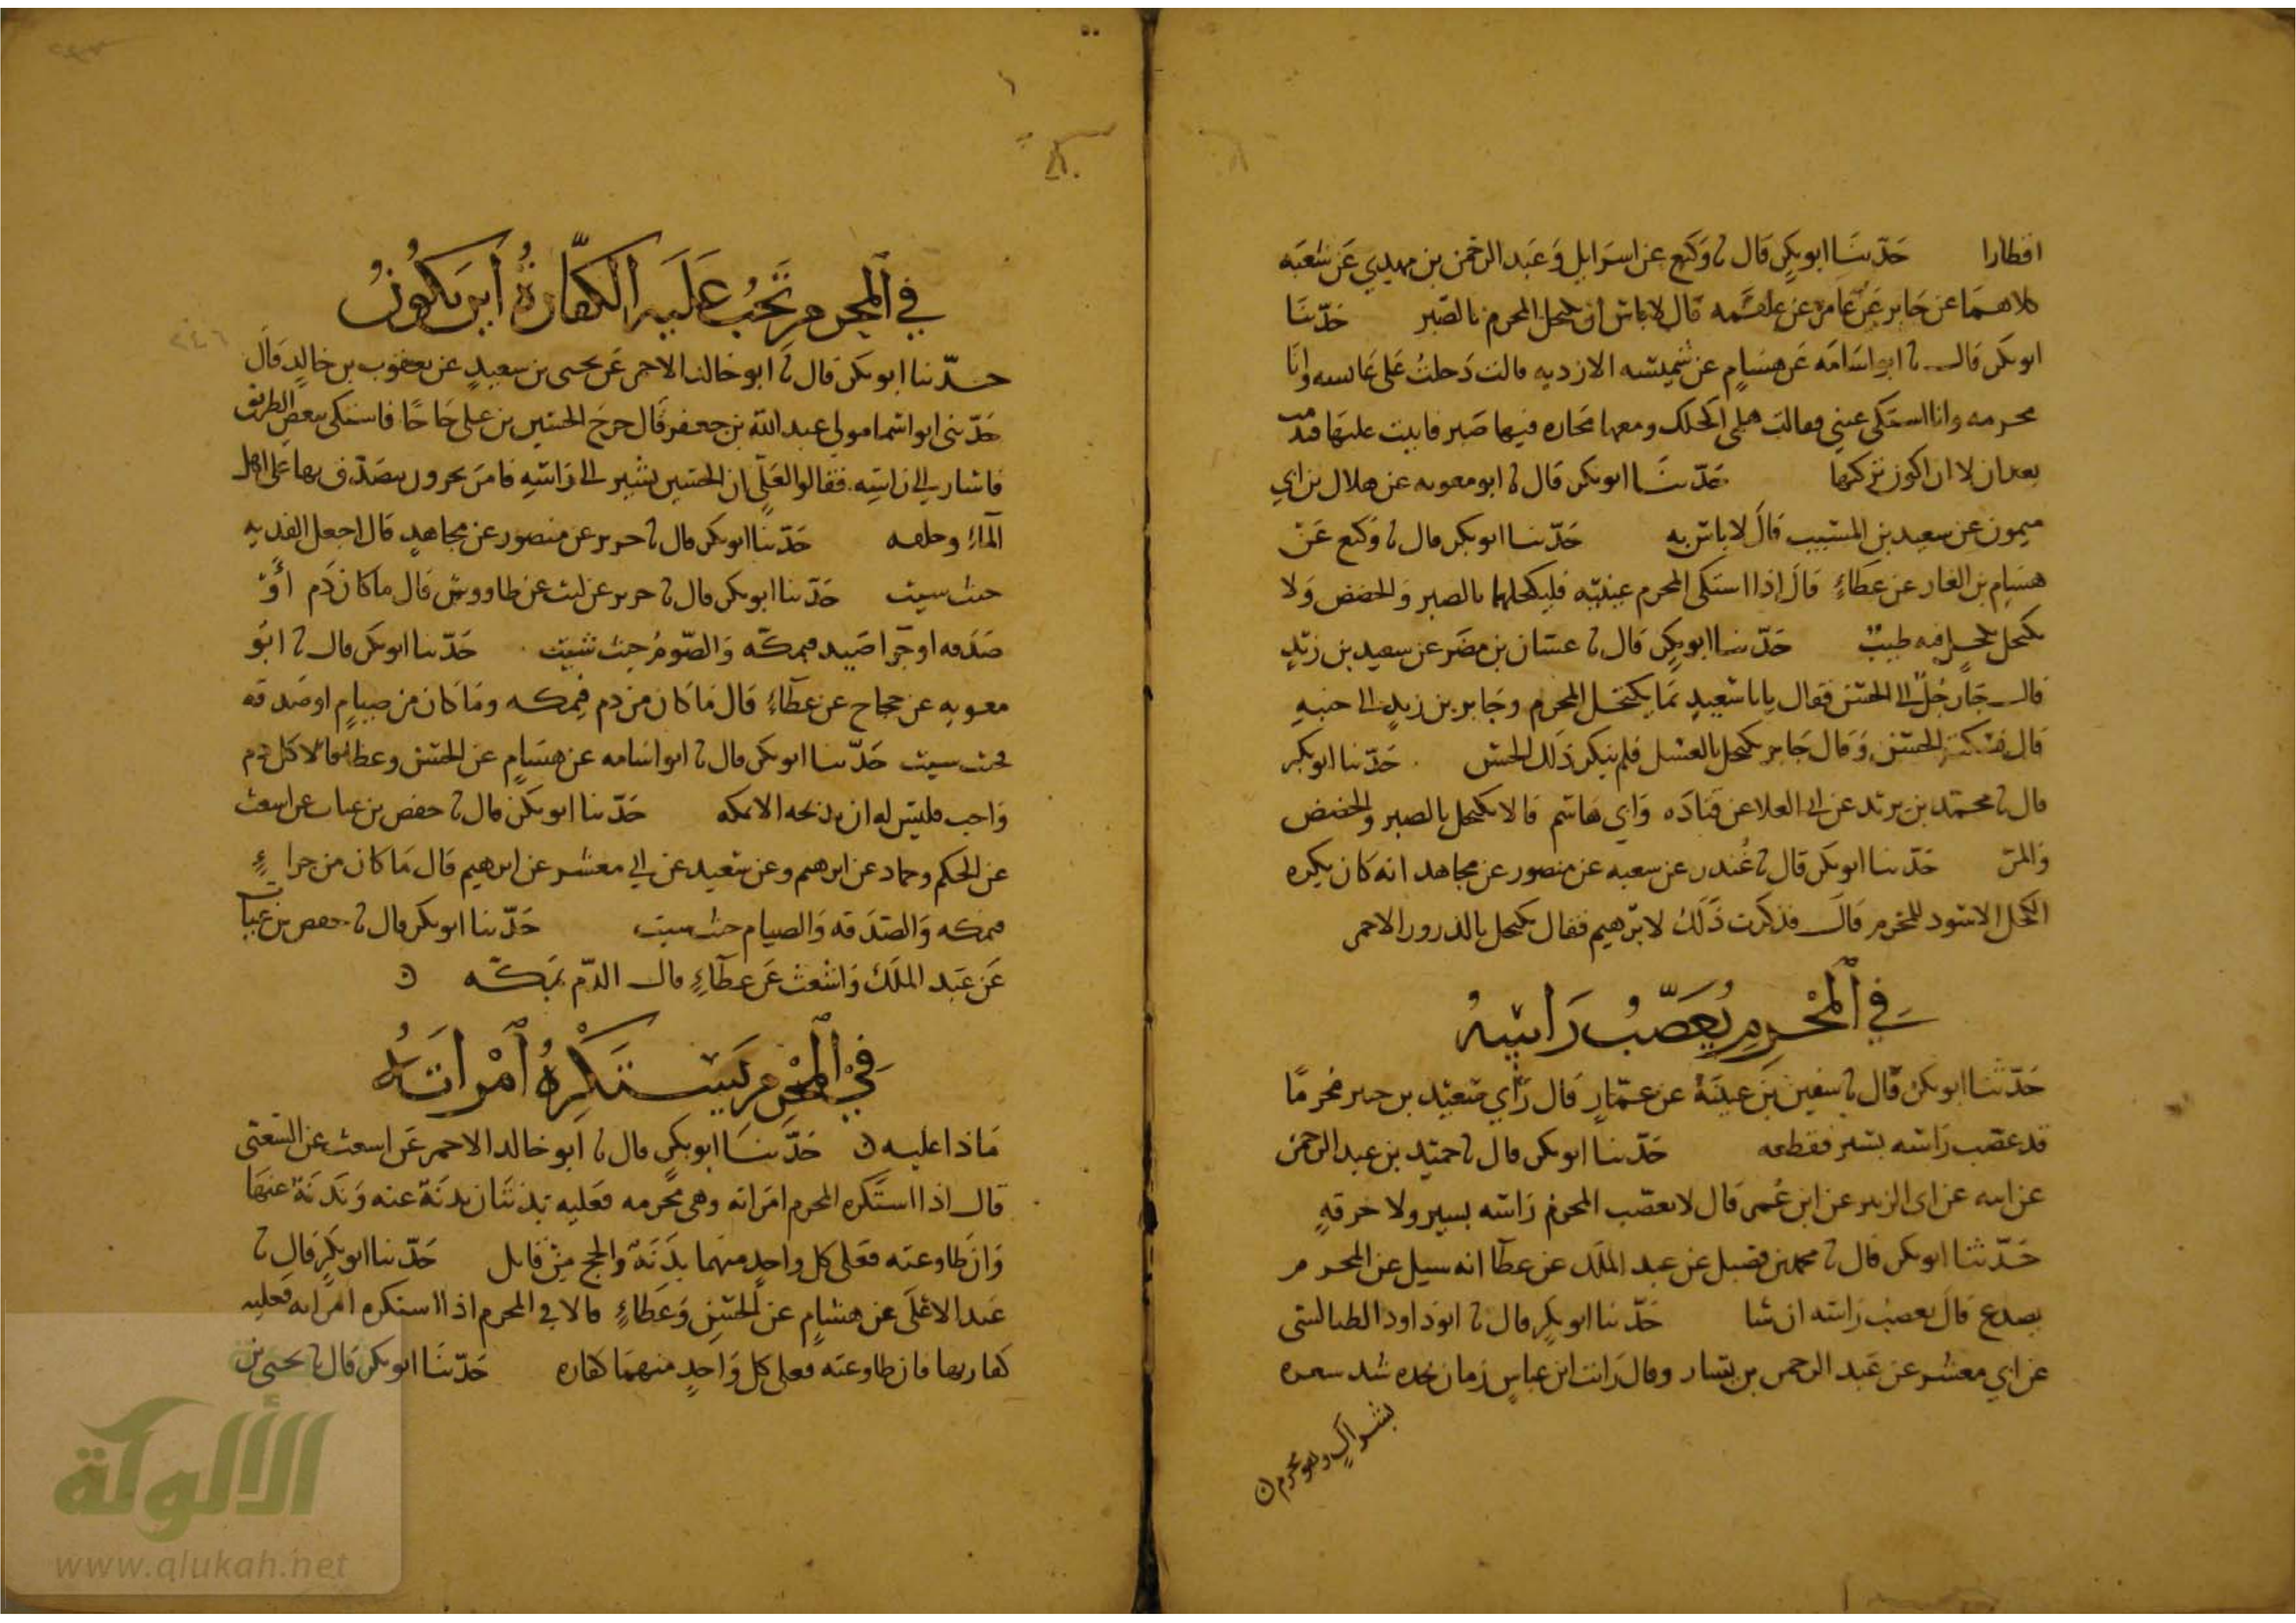 اقطارا حدثنا ابو بكر قال نا وكيع عن اسرايل وعبد الرحمن بن مهدي عن شعبه
كلاهما عن جابر عن عامر عن علقمه قال لا باس ان يكتحل المحرم بالصبر حدثنا
ابو بكر قال نا ابو اسامه عن هشام عن شميسه الازديه قالت دخلت على عايسه وانا
محرمه وانا اشتكى عيني فقالت هلمي اكحلك ومعها محاره فيها صبر فابيت عليها فندمت
بعد ان لا اكون تركتها حدثنا ابو بكر قال نا ابو معويه عن هلال بن ابي
ميمون عن سعيد بن المسيب قال لا باس به حدثنا ابو بكر قال نا وكيع عن
هشام بن الغار عن عطاء قال اذا اشتكى المحرم عينيه فليكحلهما بالصبر والحضض ولا
يكتحل بكحل فيه طيب حدثنا ابو بكر قال نا غسان بن مضر عن سعيد بن زيد
قال جا رجل الى الحسن فقال يابا سعيد بما يكتحل المحرم وجابر بن زيد الى جنبه
قال فسكت الحسن وقال جابر يكتحل بالعسل فلم ينكر ذلك الحسن حدثنا ابو بكر
قال نا محمد بن يزيد عن ابي العلا عن قتاده وابي هاشم قالا يكتحل بالصبر والحضض
والمر حدثنا ابو بكر قال نا غندر عن سعبه عن منصور عن مجاهد انه كان يكره
الكحل الاسود للمحرم قال فذكرت ذلك لابرهيم فقال يكتحل بالذرور الاحمر
في المحرم يعصب راسه
حدثنا ابو بكر قال نا سفين بن عيينة عن عمار قال راي سعيد بن جبير محرما
قد عصب راسه بسير فقطعه حدثنا ابو بكر قال نا حميد بن عبد الرحمن
عن ابيه عن ابي الزبير عن ابن عمر قال لا يعصب المحرم راسه بسير ولا خرقة
حدثنا ابو بكر قال نا محمد بن فضيل عن عبد الملك عن عطا انه سيل عن المحرم
يصدع قال يعصب راسه ان شا حدثنا ابو بكر قال نا ابو داود الطيالسي
عن ابي معشر عن عبد الرحمن بن يسار وقال رايت ابن عباس شد شعره
بشراك وهو محرم
في المحرم تجب عليه الكفارة اين يكون
حدثنا ابو بكر قال نا ابو خالد الاحمر عن يحيى بن سعيد عن يعقوب بن خالد قال
حدثني ابو اسما مولى عبد الله بن جعفر قال خرج الحسين بن علي حاجا فاشتكى ببعض الطريق
فاشار الى راسه فقالوا لعلي ان الحسين يشير الى راسه فامر بجزور يتصدق بها على اهل
الماء وحلقه حدثنا ابو بكر قال نا جرير عن منصور عن مجاهد قال اجعل الفديه
حيث سيت حدثنا ابو بكر قال نا جرير عن ليث عن طاووس قال ما كان دم او
صدقه او جزا صيد فبمكة والصوم حيث شيت حدثنا ابو بكر قال نا ابو
معويه عن حجاج عن عطاء قال ما كان من دم فبمكه وما كان من صيام او صدقه
فحيث سيت حدثنا ابو بكر قال نا ابو اسامه عن هشام عن الحسن وعطا قالا كل دم
واجب فليس له ان يذبحه الا بمكه حدثنا ابو بكر قال نا حفص بن غياث عن اشعث
عن الحكم وحماد عن ابرهيم وعن سعيد عن ابي معشر عن ابرهيم قال ما كان من جزاء
فبمكه والصدقه والصيام حيث سيت حدثنا ابو بكر قال نا حفص بن غياث
عن عبد الملك واشعث عن عطاء قال الدم بمكه
في المحرم يستكره امراته
ماذا عليه حدثنا ابو بكر قال نا ابو خالد الاحمر عن اشعث عن الشعبي
قال اذا استكره المحرم امراته وهي محرمه فعليه بدنتان بدنة عنه وبدنة عنها
وان طاوعته فعلى كل واحد منهما بدنة والحج من قابل حدثنا ابو بكر قال نا
عبد الاعلى عن هشام عن الحسن وعطاء قالا في المحرم اذا استكره امراته فعليه
كفارتها فان طاوعته فعلى كل واحد منهما كفاره حدثنا ابو بكر قال نا يحيى بن
الألوكة
www.alukah.net